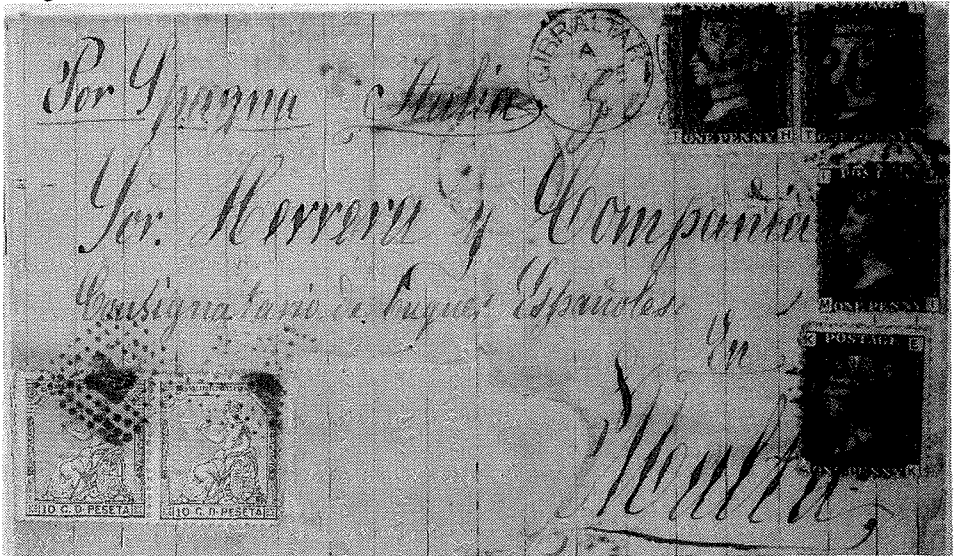 Por Spagna e Italia
GIBRALTAR
A
Sor. Herrera y Compania
Consignatario de Buques Españoles
En
Malta
ONE PENNY H
ONE PENNY
POSTAGE
M ONE PENNY I
K POSTAGE E
ONE PENNY K
10 C. D. PESETA
10 C. D. PESETA